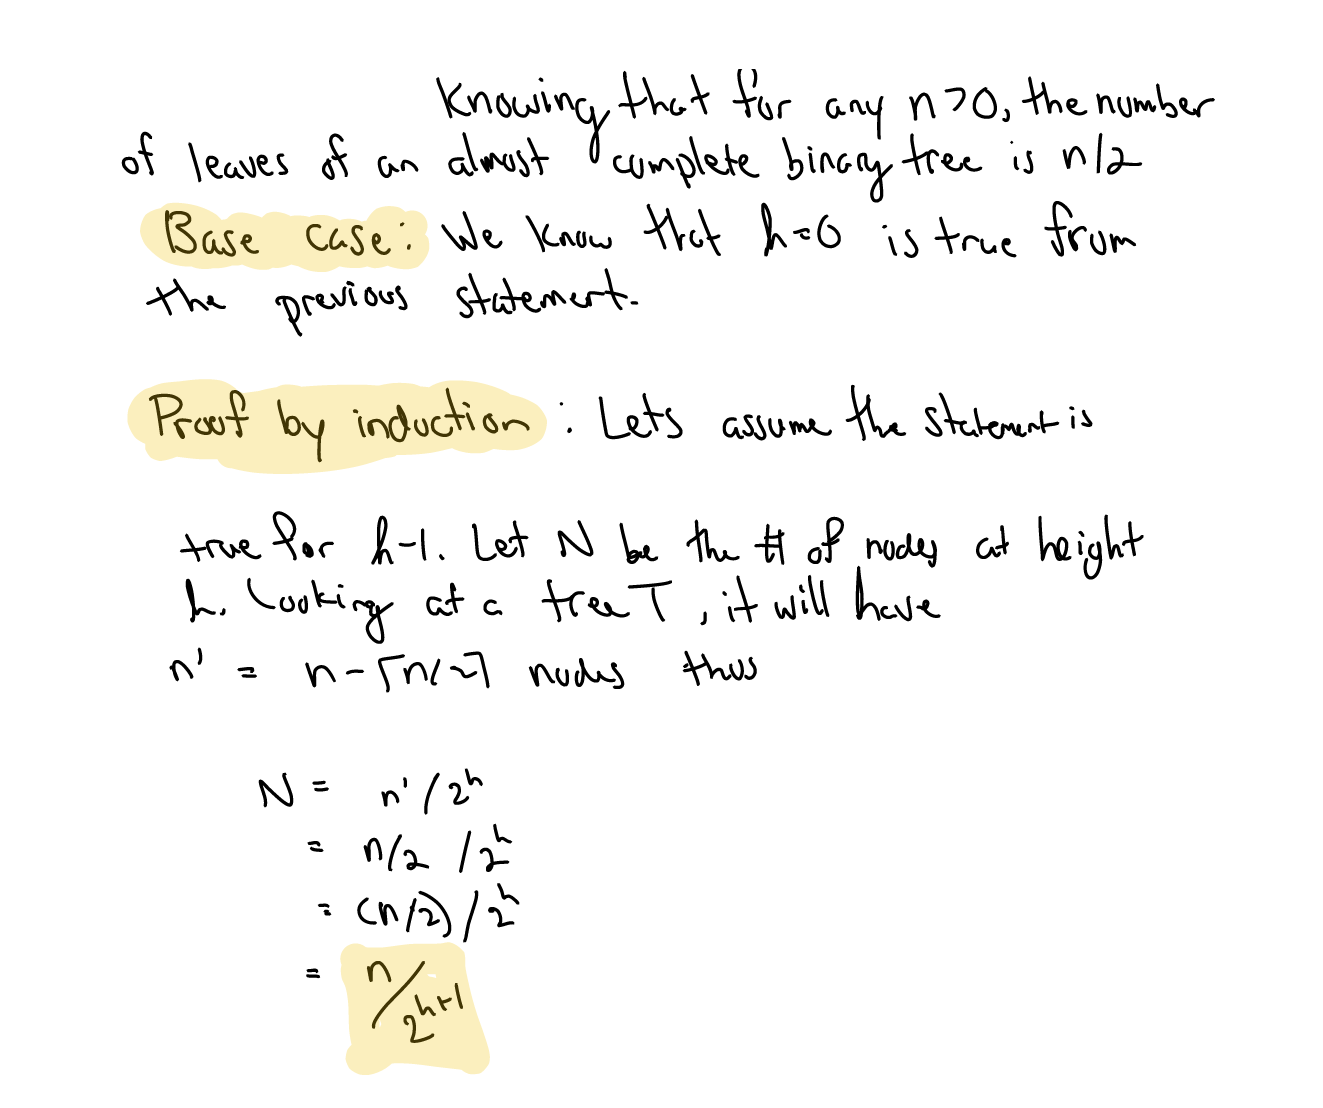 Knowing that for any n>0, the number
of leaves of an almost complete binary tree is n/2
Base case: We know that h=0 is true from
the previous statement.
Proof by induction: Lets assume the statement is
true for h-1. Let N be the # of nodes at height
h. Looking at a tree T, it will have
n' = n-⌈n/2⌉ nodes thus
N = n'/2^h
= n/2 /2^h
= (n/2)/2^h
= n/2^h+1